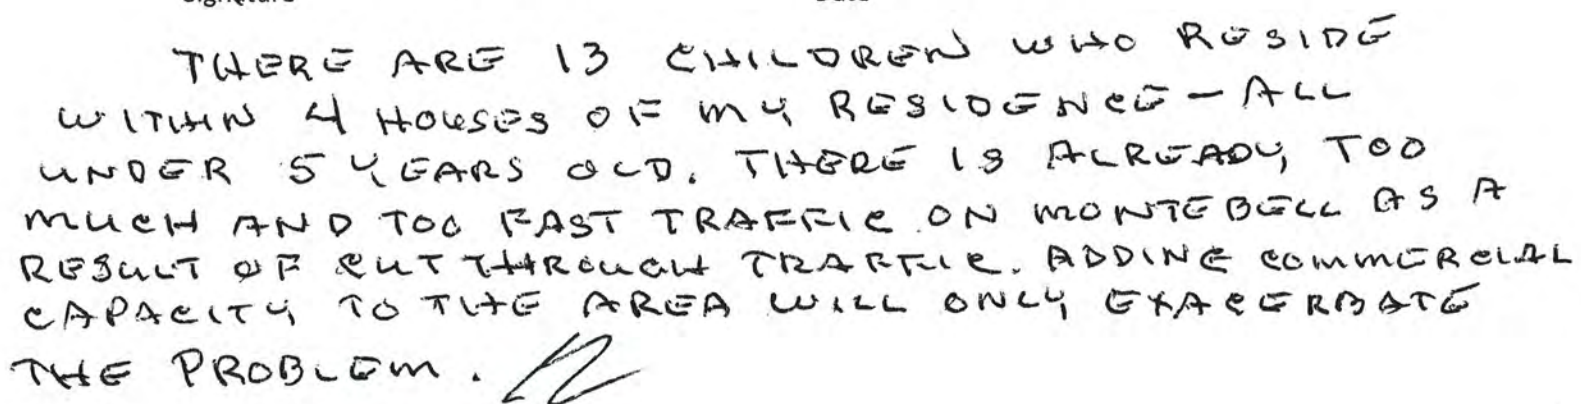 THERE ARE 13 CHILDREN WHO RESIDE
WITHIN 4 HOUSES OF MY RESIDENCE - ALL
UNDER 5 YEARS OLD. THERE IS ALREADY TOO
MUCH AND TOO FAST TRAFFIC ON MONTEBELL AS A
RESULT OF CUT THROUGH TRAFFIC. ADDING COMMERCIAL
CAPACITY TO THE AREA WILL ONLY EXACERBATE
THE PROBLEM.